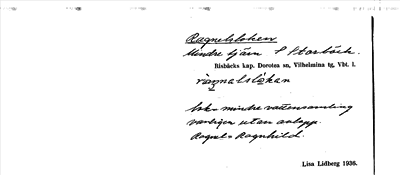 Ragnelsloken
Mindre tjärn S Storbäck.
Risbäcks kap. Dorotea sn, Vilhelmina tg, Vbt. l.
lok = mindre vattensamling
vanligen utan avlopp.
Ragnel = Ragnhild.
Lisa Lidberg 1936.